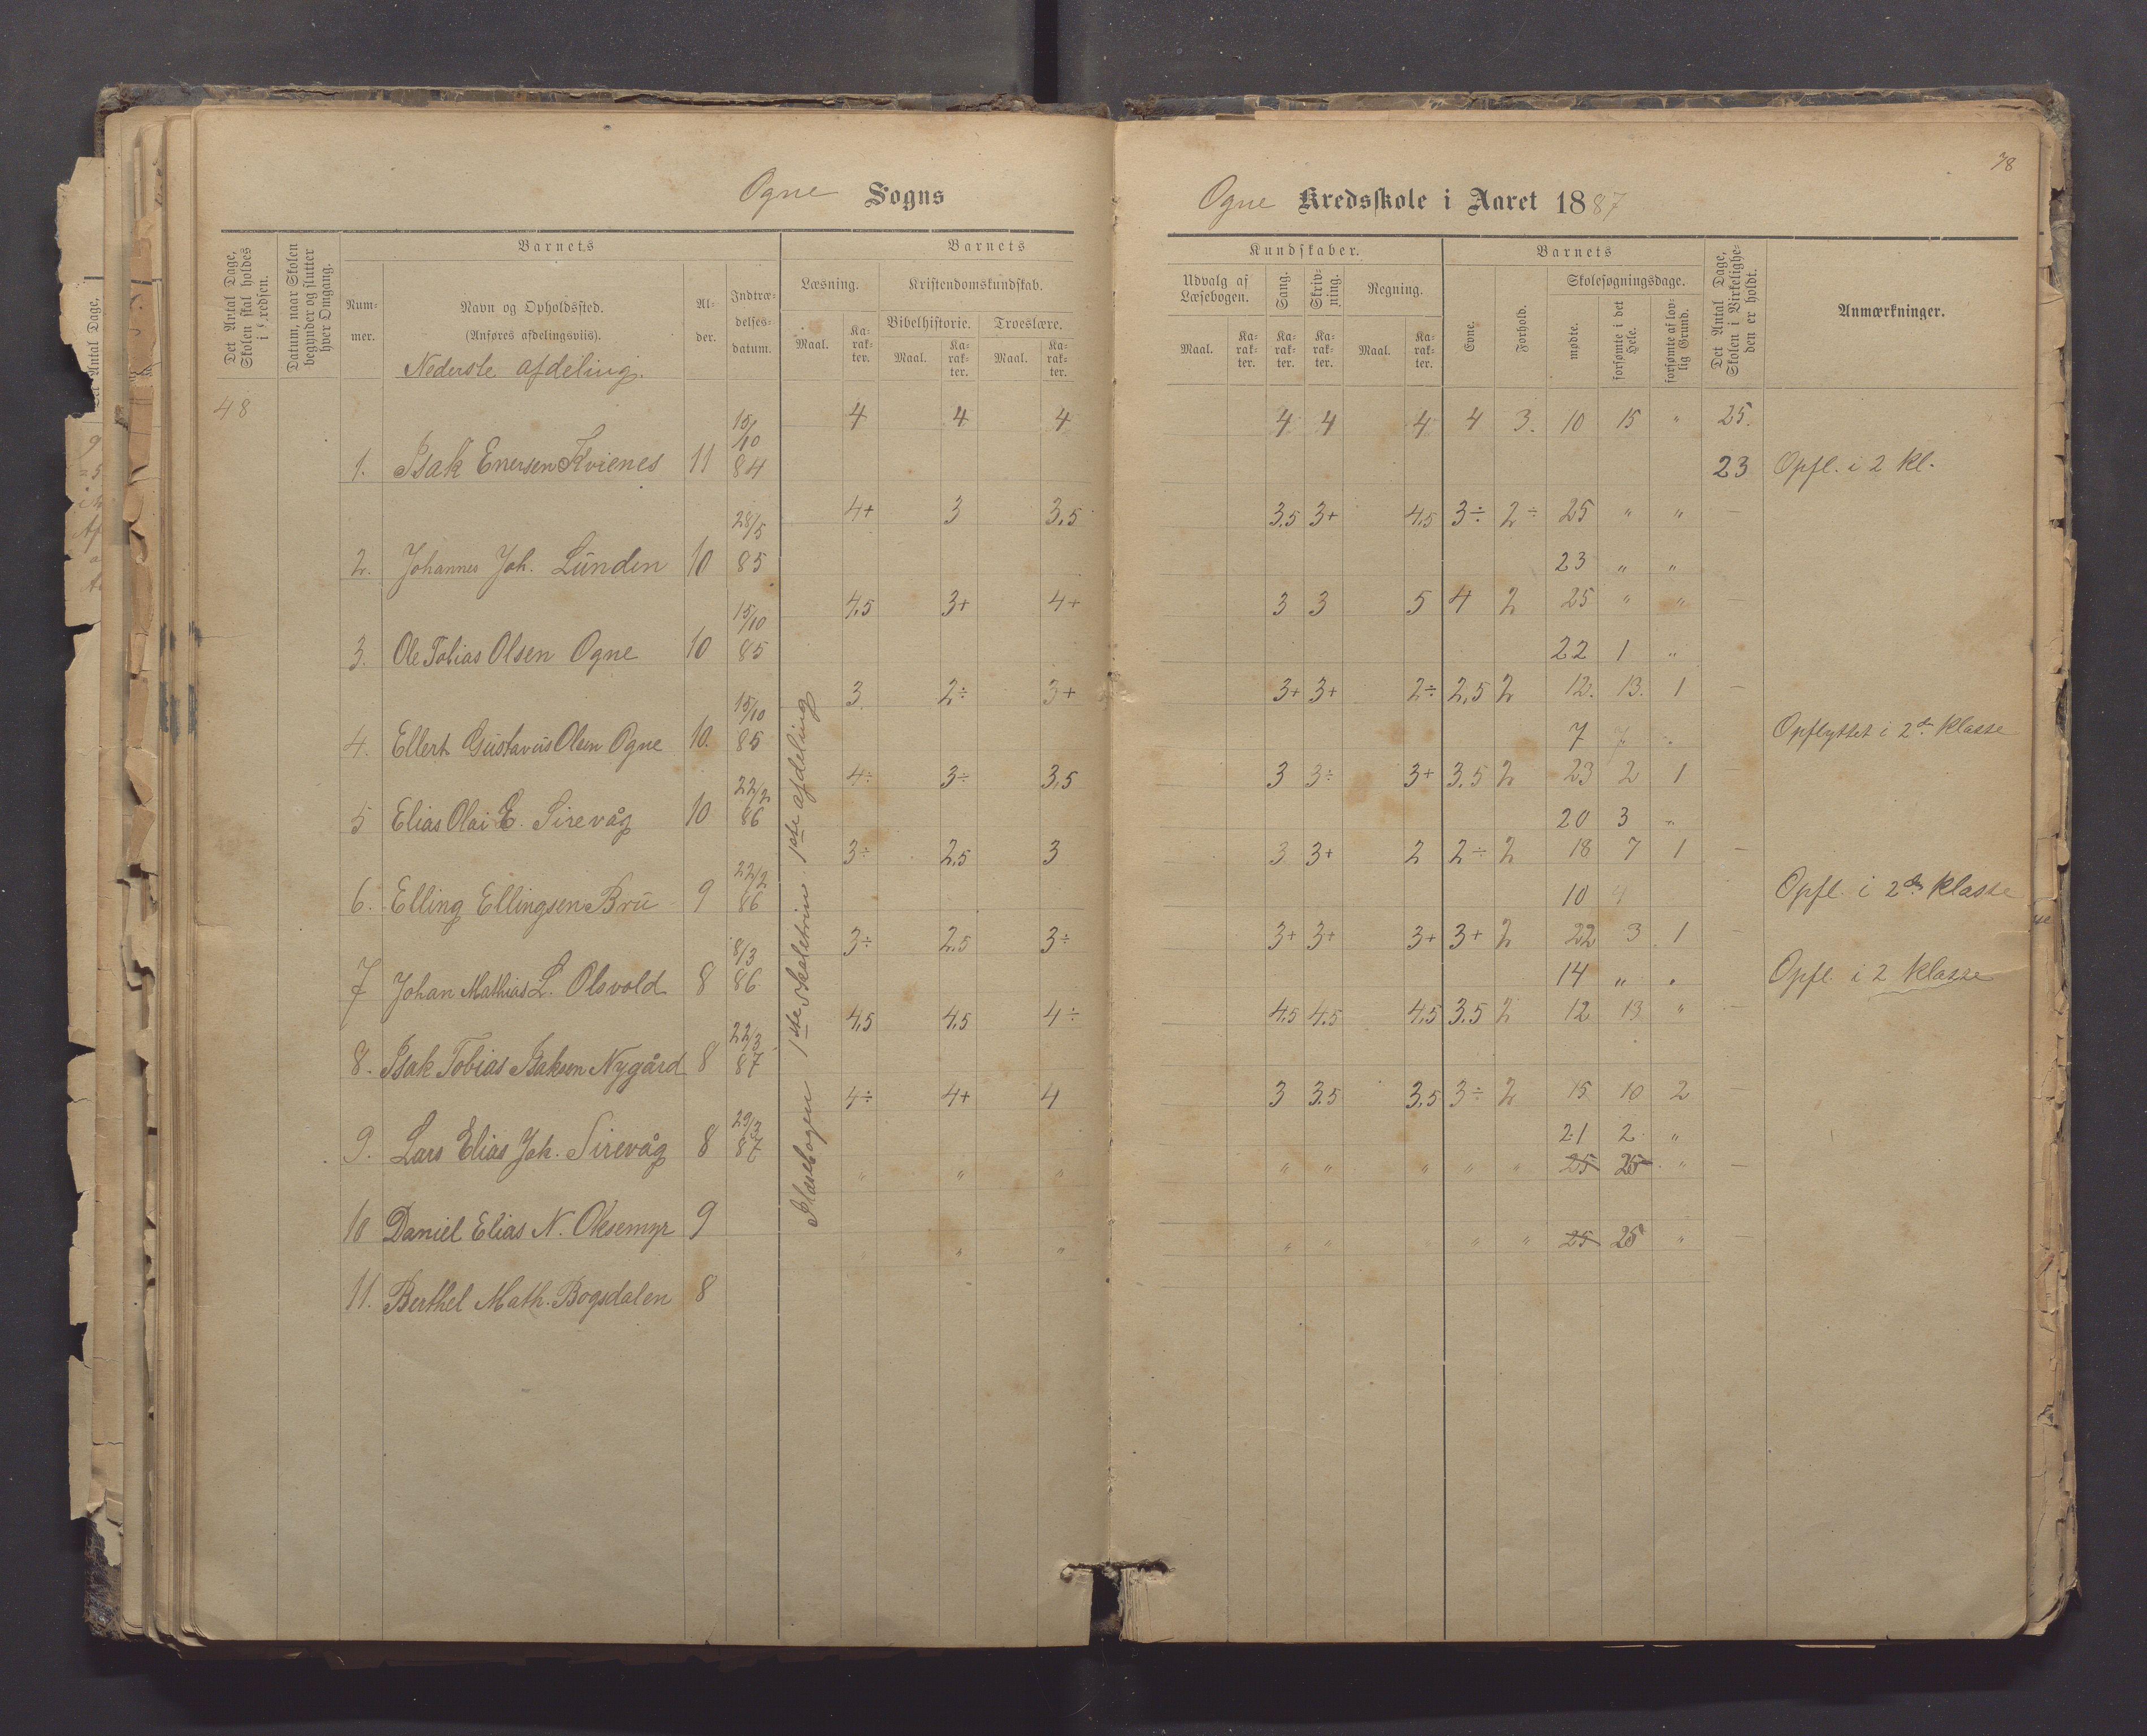 Ogne Sogns
Det Antal Dage, Skolen skal holdes i Kredsen.
Datum, naar Skolen begynder og slutter hver Omgang.
Barnets
Barnets
Nummer.
Navn og Opholdssted.
(Anføres afdelingsviis).
Nederste afdeling.
Alder.
Indtrædelsesdatum.
Læsning.
Kristendomskundskab.
Bibelhistorie. Troeslære.
Maal. Karakter. Maal. Karakter. Maal. Karakter.
48
1. Isak Enersen Kvienes 11 15/10 84 4 4 4
2. Johannes Joh. Lunden 10 28/5 85 4+ 3 3,5
3. Ole Tobias Olsen Ogne 10 15/10 85 4,5 3+ 4+
4. Ellert Gustavus Olsen Ogne 10. 15/10 85 3 2÷ 3+
5 Elias Olai E. Sirevåg 10 22/2 86 4÷ 3÷ 3,5
6. Elling Ellingsen Bru 9 22/2 86 3÷ 2,5 3
7 Johan Mathias L. Olsvold 8 8/3 86 3÷ 2.5 3÷
8. Isak Tobias Isaksen Nygård 8 22/3 87 4,5 4,5 4÷
9. Lars Elias Joh. Sirevåg 8 29/3 87 4÷ 4+ 4
10 Daniel Elias N. Oksemyr 9 " " "
11. Berthel Math. Bogsdalen 8 " "
1ste Skoletrin. 1ste afdeling
78
Ogne Kredsskole i Aaret 1887
Kundskaber.
Barnets
Udvalg af Læsebogen.
Sang.
Skrivning.
Regning.
Evne.
Forhold.
Skolesøgningsdage.
Det Antal Dage, Skolen i Virkeligheden er holdt.
Anmærkninger.
Maal. Karakter. Karakter. Karakter. Maal. Karakter.
mødte.
forsømte i det Hele.
forsømte af lovlig Grund.
4 4 4 4 3. 10 15 " 25.
23 Opfl. i 2 kl.
3,5 3+ 4,5 3÷ 2÷ 25 " " —
23 " "
3 3 5 4 2 25 " " —
22 1 "
3+ 3+ 2÷ 2,5 2 12. 13. 1 —
7 7 " Opflyttet i 2den Klasse
3 3÷ 3+ 3.5 2 23 2 1 —
20 3 "
3 3+ 2 2÷ 2 18 7 1 —
10 4 Opfl. i 2den klasse
3+ 3+ 3+ 3+ 2 22 3 1 —
14 " " Opfl. i 2 klasse
4.5 4.5 4,5 3.5 2 12 13 " —
3 3.5 3,5 3÷ 2 15 10 2 —
21 2 "
" " " " " 25 25 " —
" " " " 25 25 " —